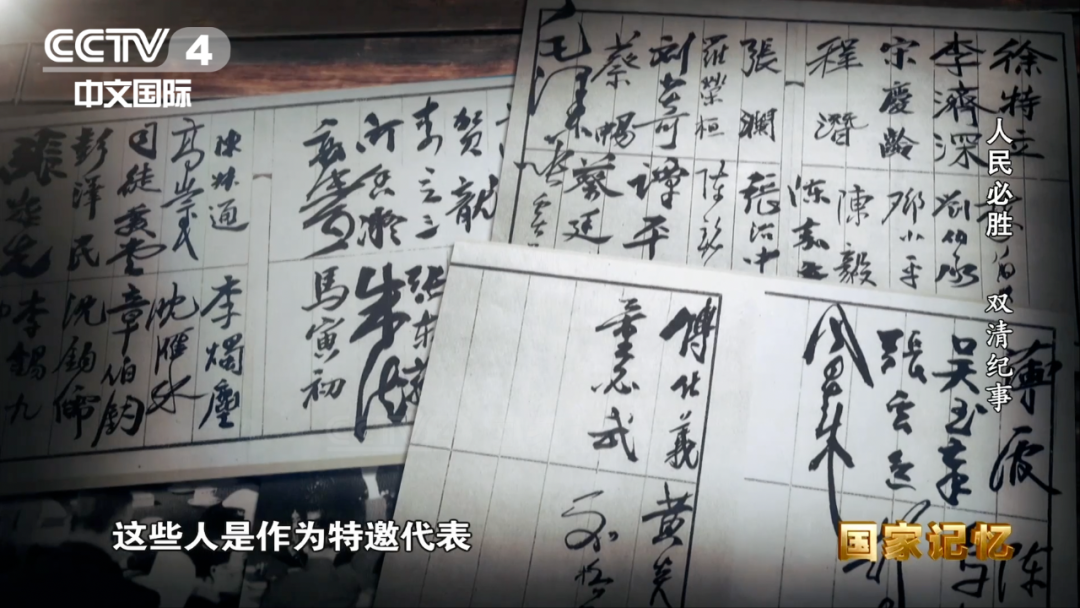 CCTV 4
中文国际
人民必胜
双清纪事
徐特立
李濟深 劉伯承
宋慶齡 鄧小平
程潛 陳毅
陈嘉
張瀾 張治中
羅榮桓
刘少奇 譚平
蔡暢 蔡廷
毛澤東
贺龍
李立三 張东
朱德
馬寅初
陳叔通 李燭塵
高崇民 沈雁冰
司徒美堂 章伯鈞
彭泽民 沈鈞儒
張难先 李錫九
薄 波 陈
吴玉章
張云逸
周恩来
傅作義 黄炎
董必武
这些人是作为特邀代表
国家记忆